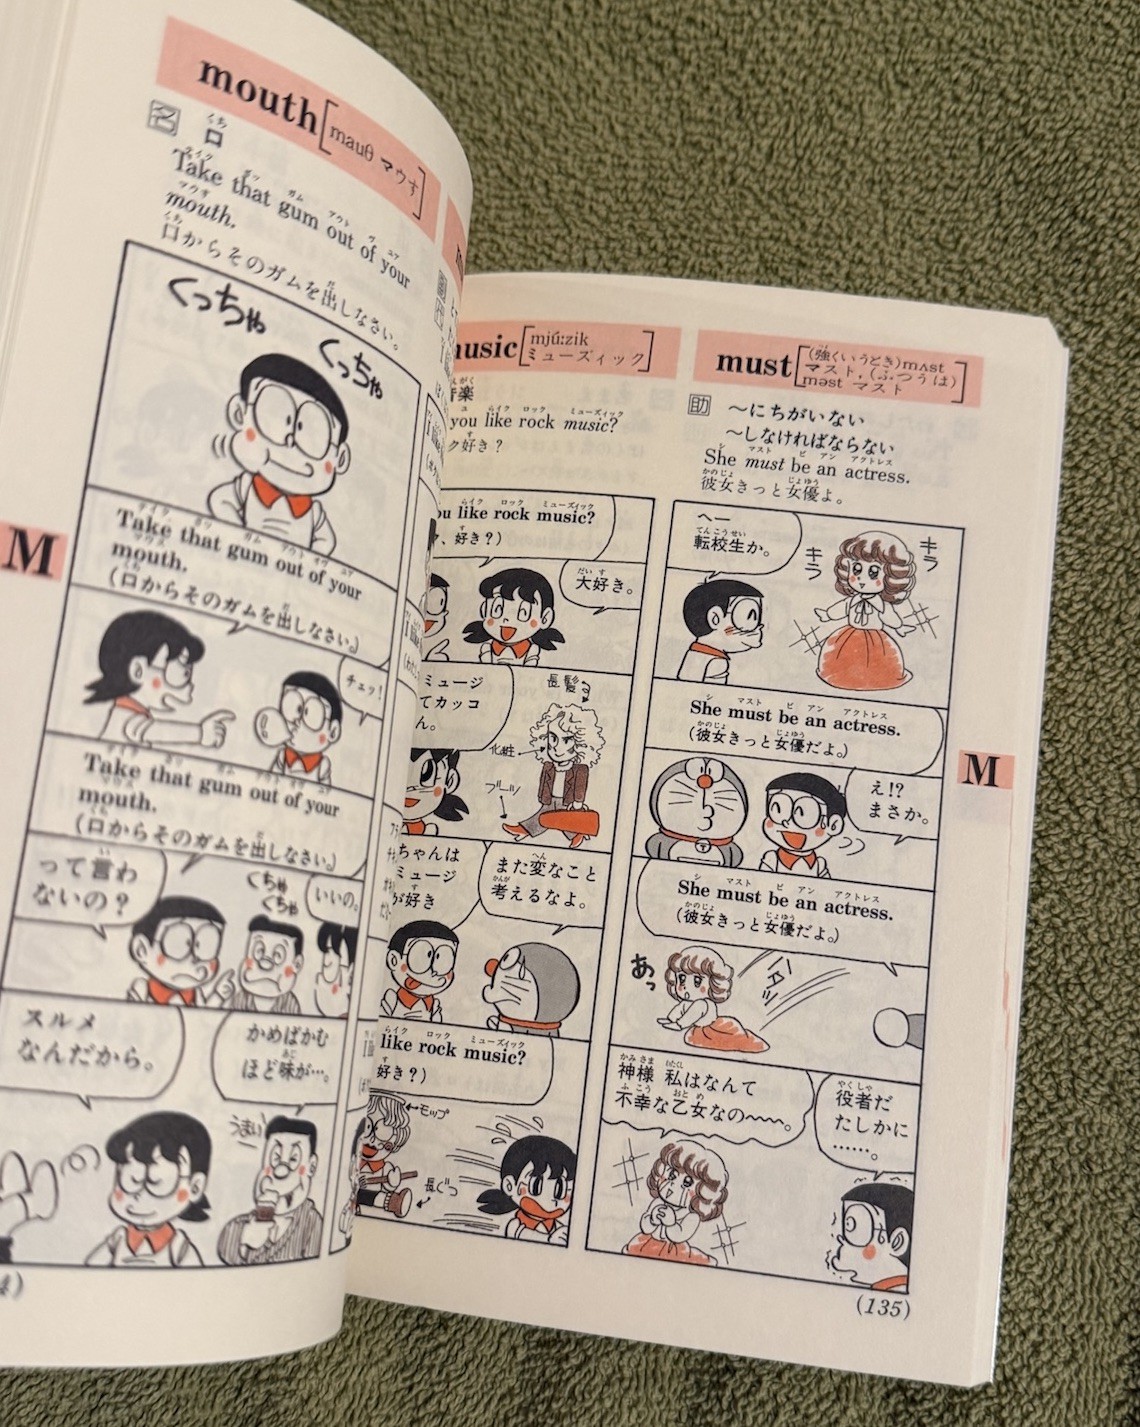 mouth [mauθ マウす]
名 口
Take that gum out of your
mouth.
口からそのガムを出しなさい。
くっちゃ
くっちゃ
Take that gum out of your
mouth.
(口からそのガムを出しなさい。)
チェッ!
Take that gum out of your
mouth.
(口からそのガムを出しなさい。)
って言わ
ないの?
くちゃ
くちゃ
いいの。
スルメ
なんだから。
かめばかむ
ほど味が…。
うまい
M
music [mjú:zik
ミューズィック]
音楽
you like rock music?
ク好き?
ou like rock music?
、好き?)
大好き。
ミュージ
てカッコ
ん。
長髪
化粧
ブーツ
ちゃんは
ミュージ
が好き
また変なこと
考えるなよ。
like rock music?
好き?)
モップ
長ぐつ
must [(強くいうとき)mʌst
マスト, (ふつうは)
məst マスト]
助 〜にちがいない
〜しなければならない
She must be an actress.
彼女きっと女優よ。
へー
転校生か。
キラ
キラ
She must be an actress.
(彼女きっと女優だよ。)
え!?
まさか。
She must be an actress.
(彼女きっと女優だよ。)
あっ
バタッ
神様 私はなんて
不幸な乙女なの〜〜。
役者だ
たしかに
……。
M
(135)